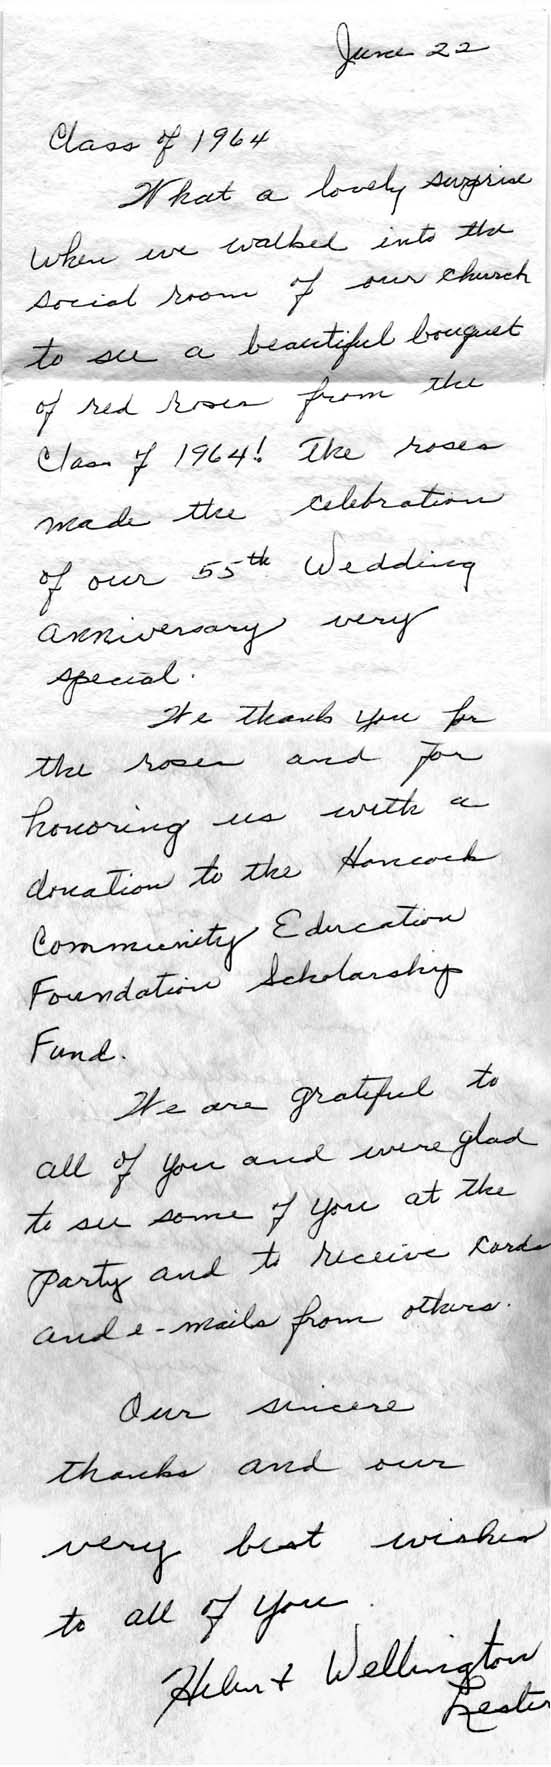 June 22
Class of 1964
What a lovely surprise
when we walked into the
social room of our church
to see a beautiful bouquet
of red roses from the
Class of 1964! The roses
made the celebration
of our 55th Wedding
anniversary very
special.
We thank you for
the roses and for
honoring us with a
donation to the Hancock
Community Education
Foundation Scholarship
Fund.
We are grateful to
all of you and were glad
to see some of you at the
party and to receive cards
and e-mails from others.
Our sincere
thanks and our
very best wishes
to all of you.
Helen + Wellington
Lester